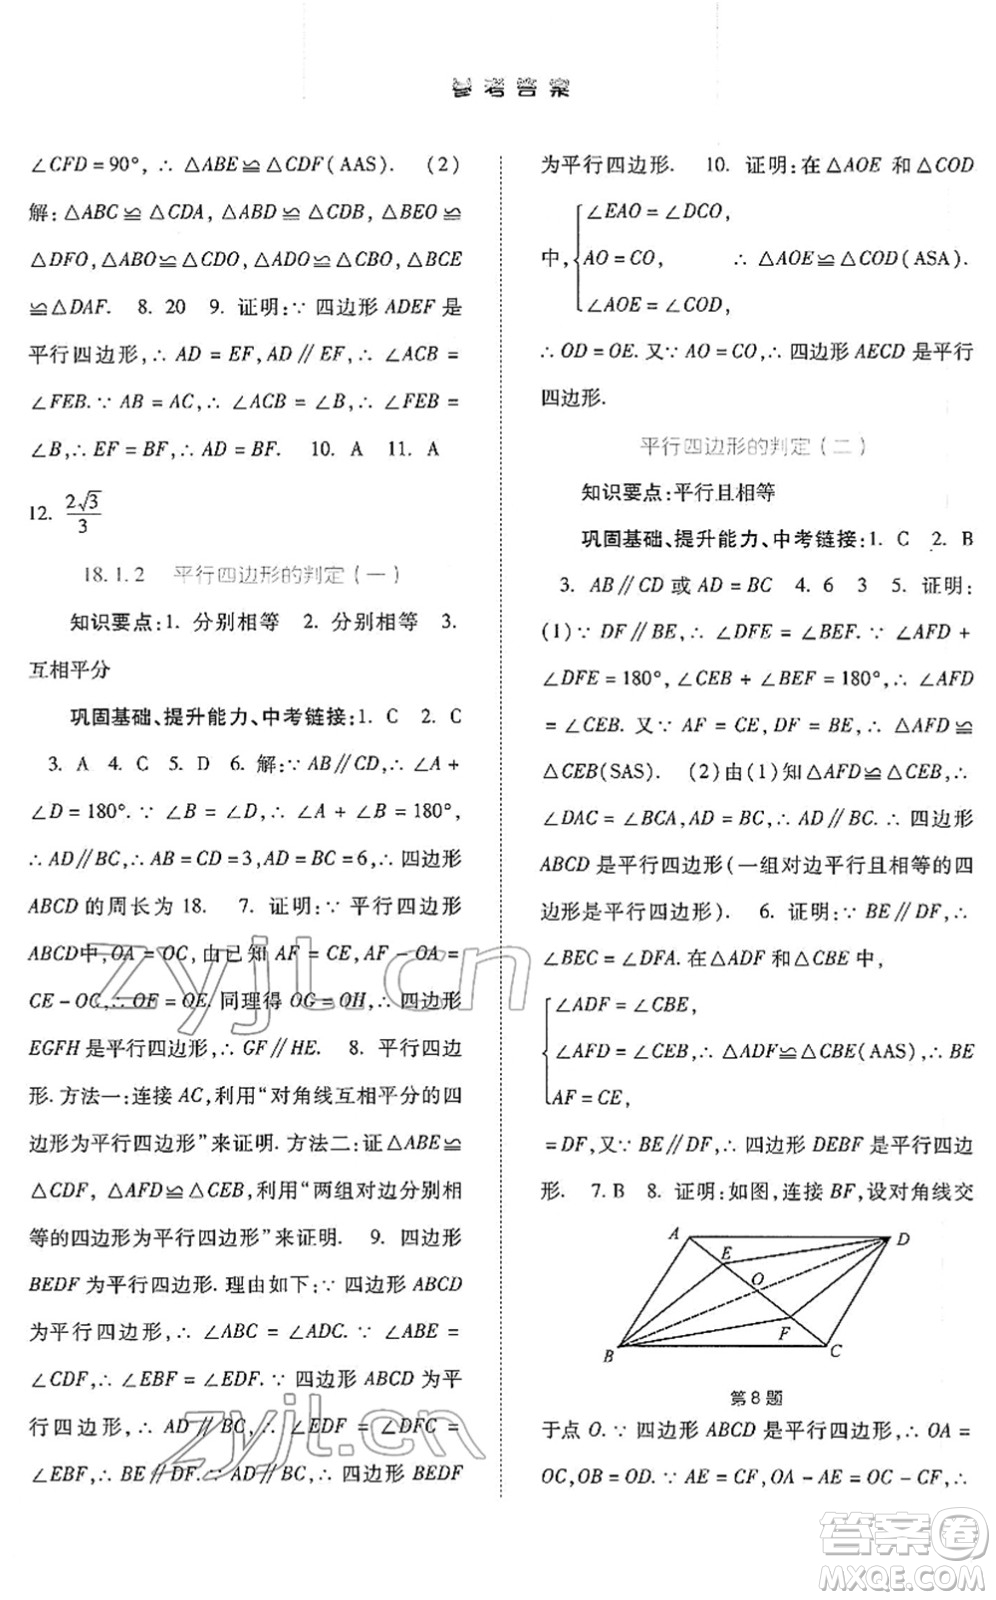 参考答案
∠CFD=90°,∴△ABE≌△CDF(AAS). (2)
解:△ABC≌△CDA,△ABD≌△CDB,△BEO≌
△DFO,△ABO≌△CDO,△ADO≌△CBO,△BCE
≌△DAF. 8. 20 9. 证明:∵四边形 ADEF 是
平行四边形,∴AD=EF,AD∥EF,∴∠ACB=
∠FEB.∵AB=AC,∴∠ACB=∠B,∴∠FEB=
∠B,∴EF=BF,∴AD=BF. 10. A 11. A
12. 2√3/3
18.1.2 平行四边形的判定(一)
知识要点:1. 分别相等 2. 分别相等 3.
互相平分
巩固基础、提升能力、中考链接:1. C 2. C
3. A 4. C 5. D 6. 解:∵AB∥CD,∴∠A+
∠D=180°.∵∠B=∠D,∴∠A+∠B=180°,
∴AD∥BC,∴AB=CD=3,AD=BC=6,∴四边形
ABCD 的周长为 18. 7. 证明:∵平行四边形
ABCD中,OA=OC,由已知 AF=CE,AF-OA=
CE-OC,∴OF=OE.同理得 OG=OH,∴四边形
EGFH 是平行四边形,∴GF∥HE. 8. 平行四边
形.方法一:连接 AC,利用“对角线互相平分的四
边形为平行四边形”来证明.方法二:证△ABE≌
△CDF,△AFD≌△CEB,利用“两组对边分别相
等的四边形为平行四边形”来证明. 9. 四边形
BEDF 为平行四边形.理由如下:∵四边形 ABCD
为平行四边形,∴∠ABC=∠ADC.∵∠ABE=
∠CDF,∴∠EBF=∠EDF.∵四边形 ABCD 为平
行四边形,∴AD∥BC,∴∠EDF=∠DFC=
∠EBF,∴BE∥DF.∵AD∥BC,∴四边形 BEDF
为平行四边形. 10. 证明:在△AOE 和△COD
∠EAO=∠DCO,
中,AO=CO, ∴△AOE≌△COD(ASA).
∠AOE=∠COD,
∴OD=OE.又∵AO=CO,∴四边形 AECD 是平行
四边形.
平行四边形的判定(二)
知识要点:平行且相等
巩固基础、提升能力、中考链接:1. C 2. B
3. AB∥CD 或 AD=BC 4. 6 3 5. 证明:
(1)∵DF∥BE,∴∠DFE=∠BEF.∵∠AFD+
∠DFE=180°,∠CEB+∠BEF=180°,∴∠AFD
=∠CEB.又∵AF=CE,DF=BE,∴△AFD≌
△CEB(SAS). (2)由(1)知△AFD≌△CEB,∴
∠DAC=∠BCA,AD=BC,∴AD∥BC.∴四边形
ABCD 是平行四边形(一组对边平行且相等的四
边形是平行四边形). 6. 证明:∵BE∥DF,∴
∠BEC=∠DFA.在△ADF 和△CBE 中,
∠ADF=∠CBE,
∠AFD=∠CEB,∴△ADF≌△CBE(AAS),∴BE
AF=CE,
=DF,又∵BE∥DF,∴四边形 DEBF 是平行四边
形. 7. B 8. 证明:如图,连接 BF,设对角线交
A
D
E
O
F
B
C
第8题
于点 O.∵四边形 ABCD 是平行四边形,∴OA=
OC,OB=OD.∵AE=CF,OA-AE=OC-CF,∴
zyjl.cn
zyjl.cn
答案卷
MXQE.COM